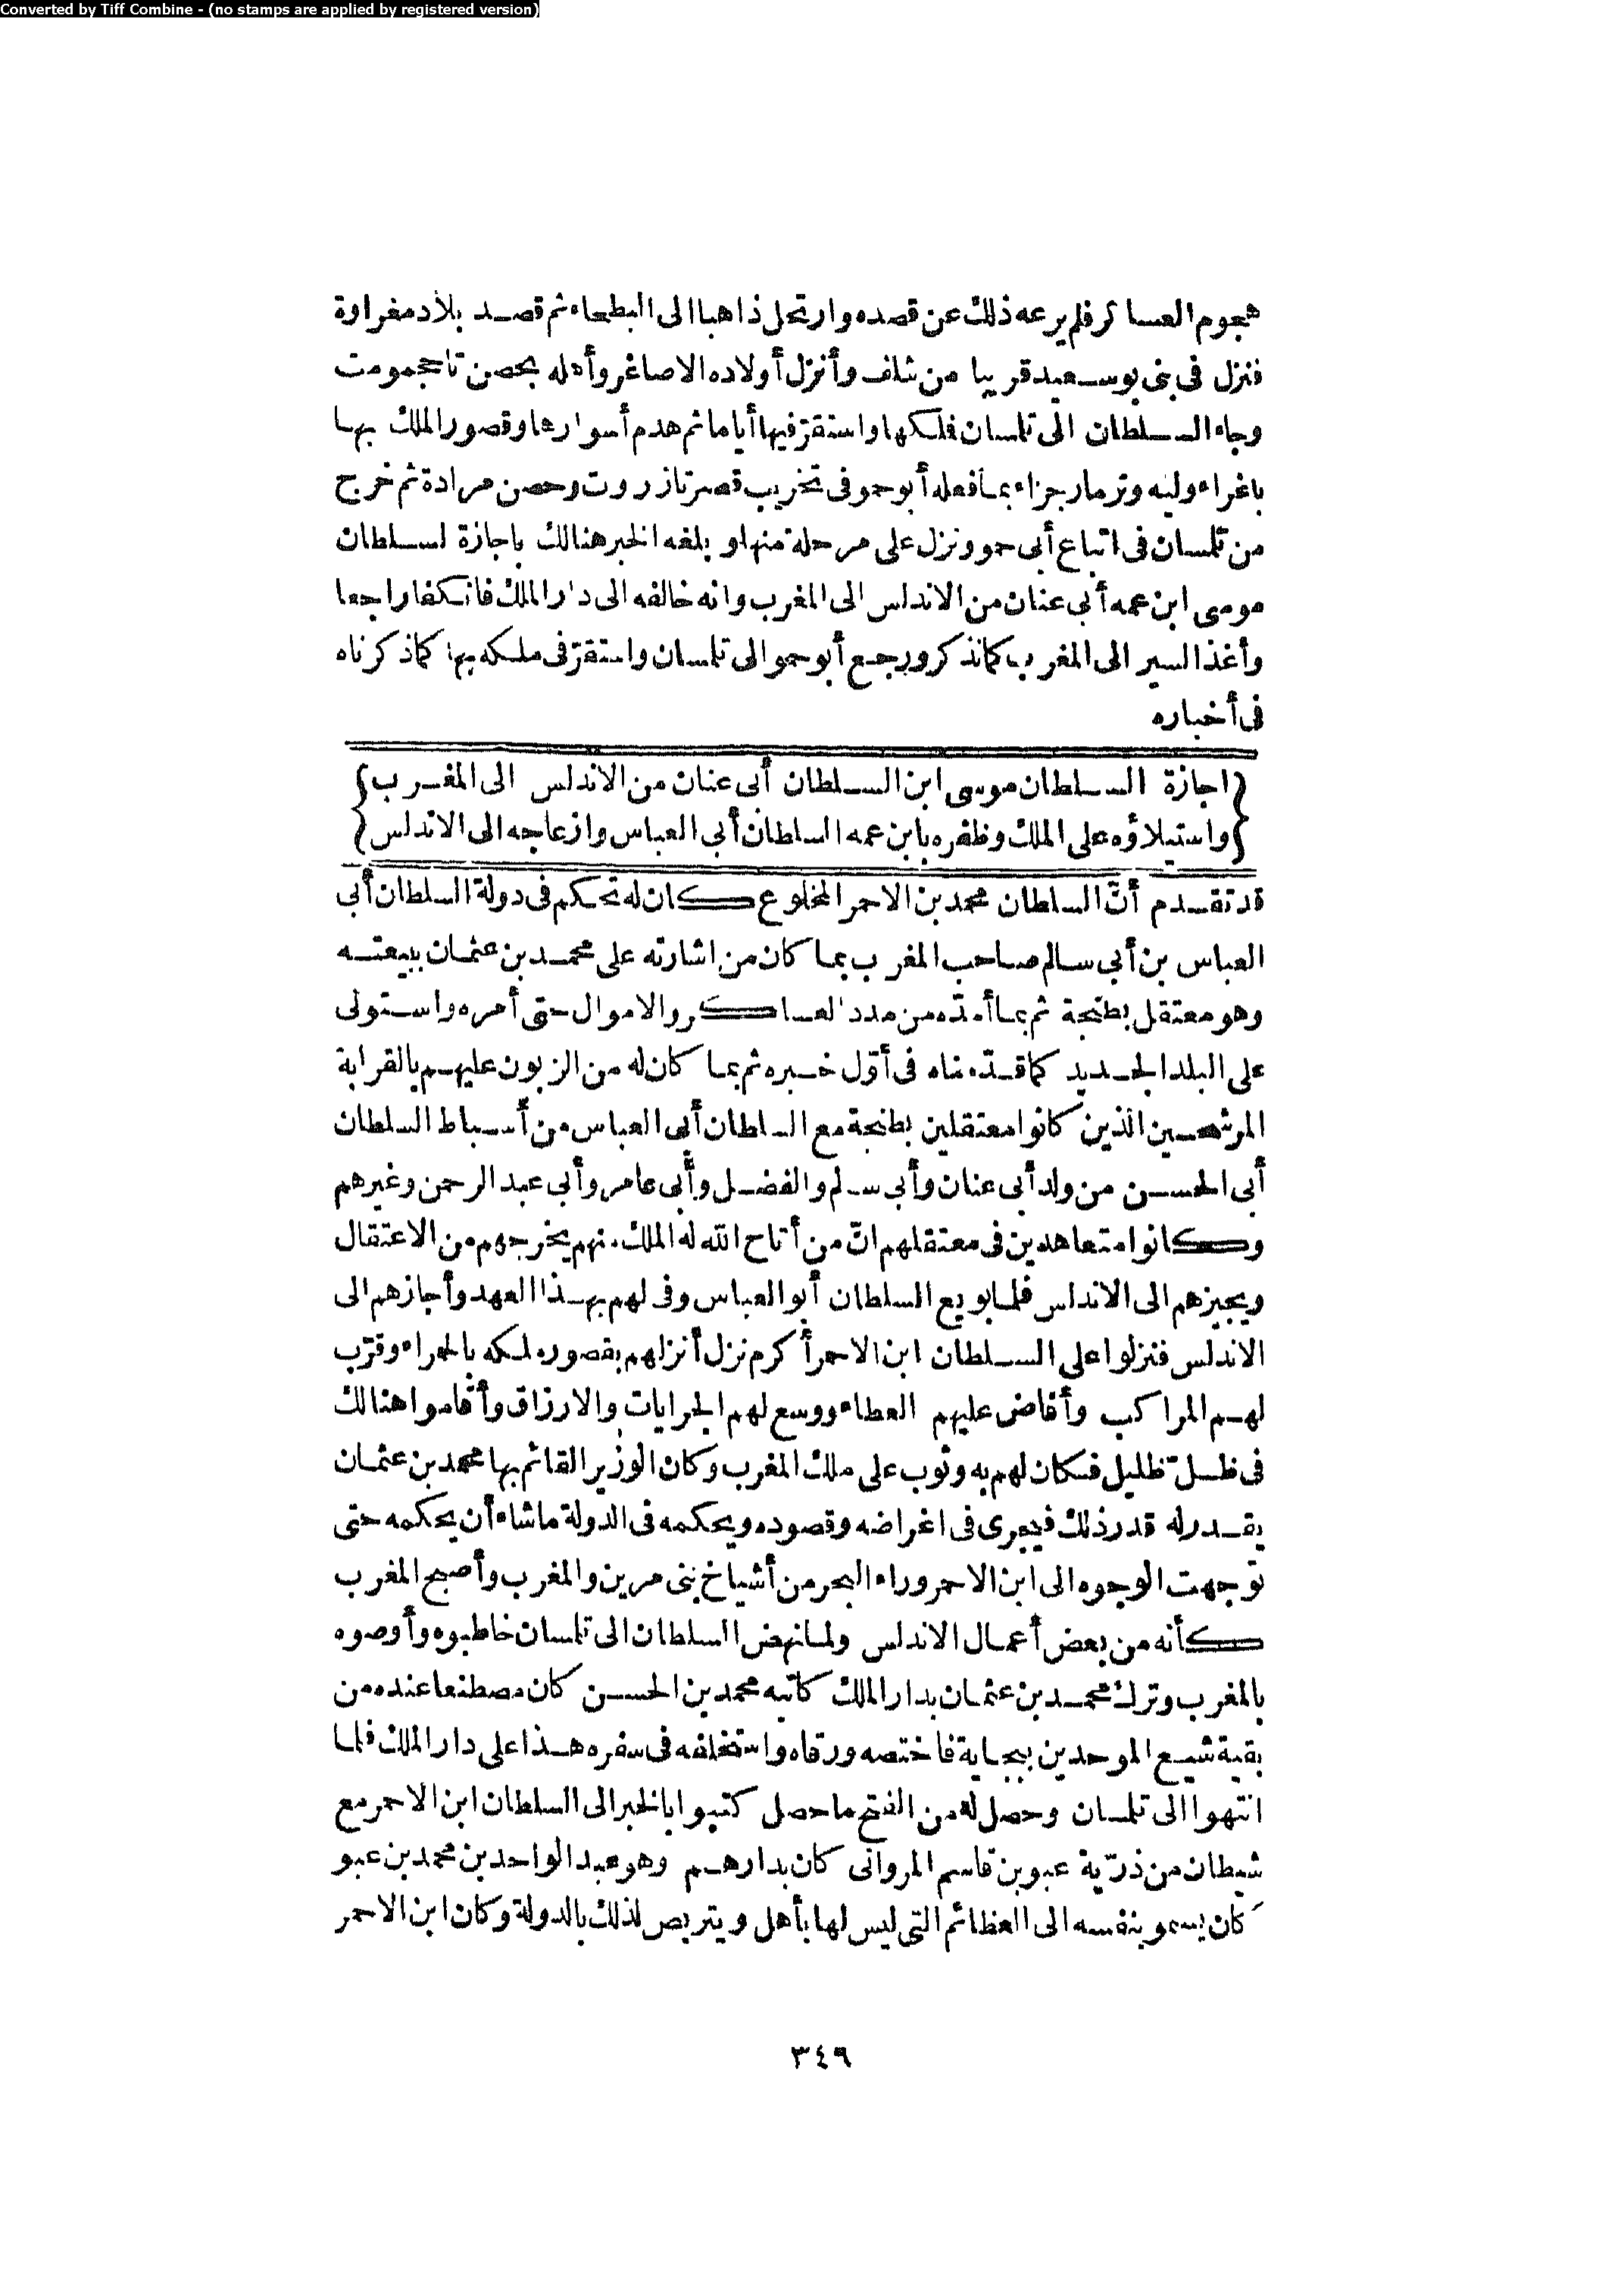 Converted by Tiff Combine - (no stamps are applied by registered version)
هجوم العساكر فلم يرعه ذلك عن قصده وارتحل ذاهبا الى البطحاء ثم قصد بلاد مغراوة
فنزل فى بنى بوسعيد قريبا من شلف وأنزل أولاده الاصاغر وأهله بحصن تاحجمومت
وجاء السلطان الى تلمسان فملكها واستقرّ فيها أياما ثم هدم أسوارها وقصور الملك بها
باغراء وليه وترمار جزاء بما فعله أبو حمو فى تخريب قصر تازروت وحصن مرادة ثم خرج
من تلمسان فى اتباع أبى حمو ونزل على مرحلة منها وبلغه الخبر هنالك باجازة لسلطان
موسى ابن عمه أبى عنان من الاندلس الى المغرب وانه خالفه الى دار الملك فانكفا راجعا
وأغذ السير الى المغرب كما نذكر ورجع أبو حمو الى تلمسان واستقرّ فى ملكه بها كما ذكرناه
فى أخباره
{اجازة السلطان موسى ابن السلطان أبى عنان من الاندلس الى المغرب}
{واستيلاؤه على الملك وظفره بابن عمه السلطان أبى العباس وازعاجه الى الاندلس}
قد تقدم أنّ السلطان محمد بن الاحمر المخلوع كان له تحكم فى دولة السلطان أبى
العباس بن أبى سالم صاحب المغرب بما كان من اشارته على محمد بن عثمان ببيعته
وهو معتقل بطنجة ثم بما أمدّه من مدد العساكر والاموال حتى أمره واستولى
على البلد الجديد كما قدّمناه فى أوّل خبره ثم بما كان له من الزبون عليهم بالقرابة
المرشحين الذين كانوا معتقلين بطنجة مع السلطان أبى العباس من أسباط السلطان
أبى الحسن من ولد أبى عنان وأبى سالم والفضل وأبى عامر وأبى عبد الرحمن وغيرهم
وكانوا متعاهدين فى معتقلهم انّ من أتاح الله له الملك منهم يخرجهم من الاعتقال
ويجيزهم الى الاندلس فلما بويع السلطان أبو العباس وفى لهم بهذا العهد وأجازهم الى
الاندلس فنزلوا على السلطان ابن الاحمر أكرم نزل أنزلهم بقصور ملكه بالحمراء وقرّب
لهم المراكب وأفاض عليهم العطاء ووسع لهم الجرايات والارزاق وأقاموا هنالك
فى ظلّ ظليل فكان لهم به وثوب على ملك المغرب وكان الوزير القائم بها محمد بن عثمان
يقدر له قدر ذلك فيجرى فى اغراضه وقصوده ويحكمه فى الدولة ما شاء أن يحكمه حتى
توجهت الوجوه الى ابن الاحمر وراء البحر من أشياخ بنى مرين والمغرب وأصبح المغرب
كأنه من بعض أعمال الاندلس ولما نهض السلطان الى تلمسان خاطبوه وأوصوه
بالمغرب وترك محمد بن عثمان بدار الملك كاتبه محمد بن الحسن كان مصطنعا عنده من
بقية شيع الموحدين ببجاية فاختصه ورقاه واستخلفه فى سفره هذا على دار الملك فلما
انتهوا الى تلمسان وحصل له من الفتح ما حصل كتبوا بالخبر الى السلطان ابن الاحمر مع
شيطان من ذرّية عبو بن قاسم المروانى كان بدارهم وهو عبد الواحد بن محمد بن عبو
كان يسمو بنفسه الى العظائم التى ليس لها بأهل ويتربص لذلك بالدولة وكان ابن الاحمر
٣٤٩